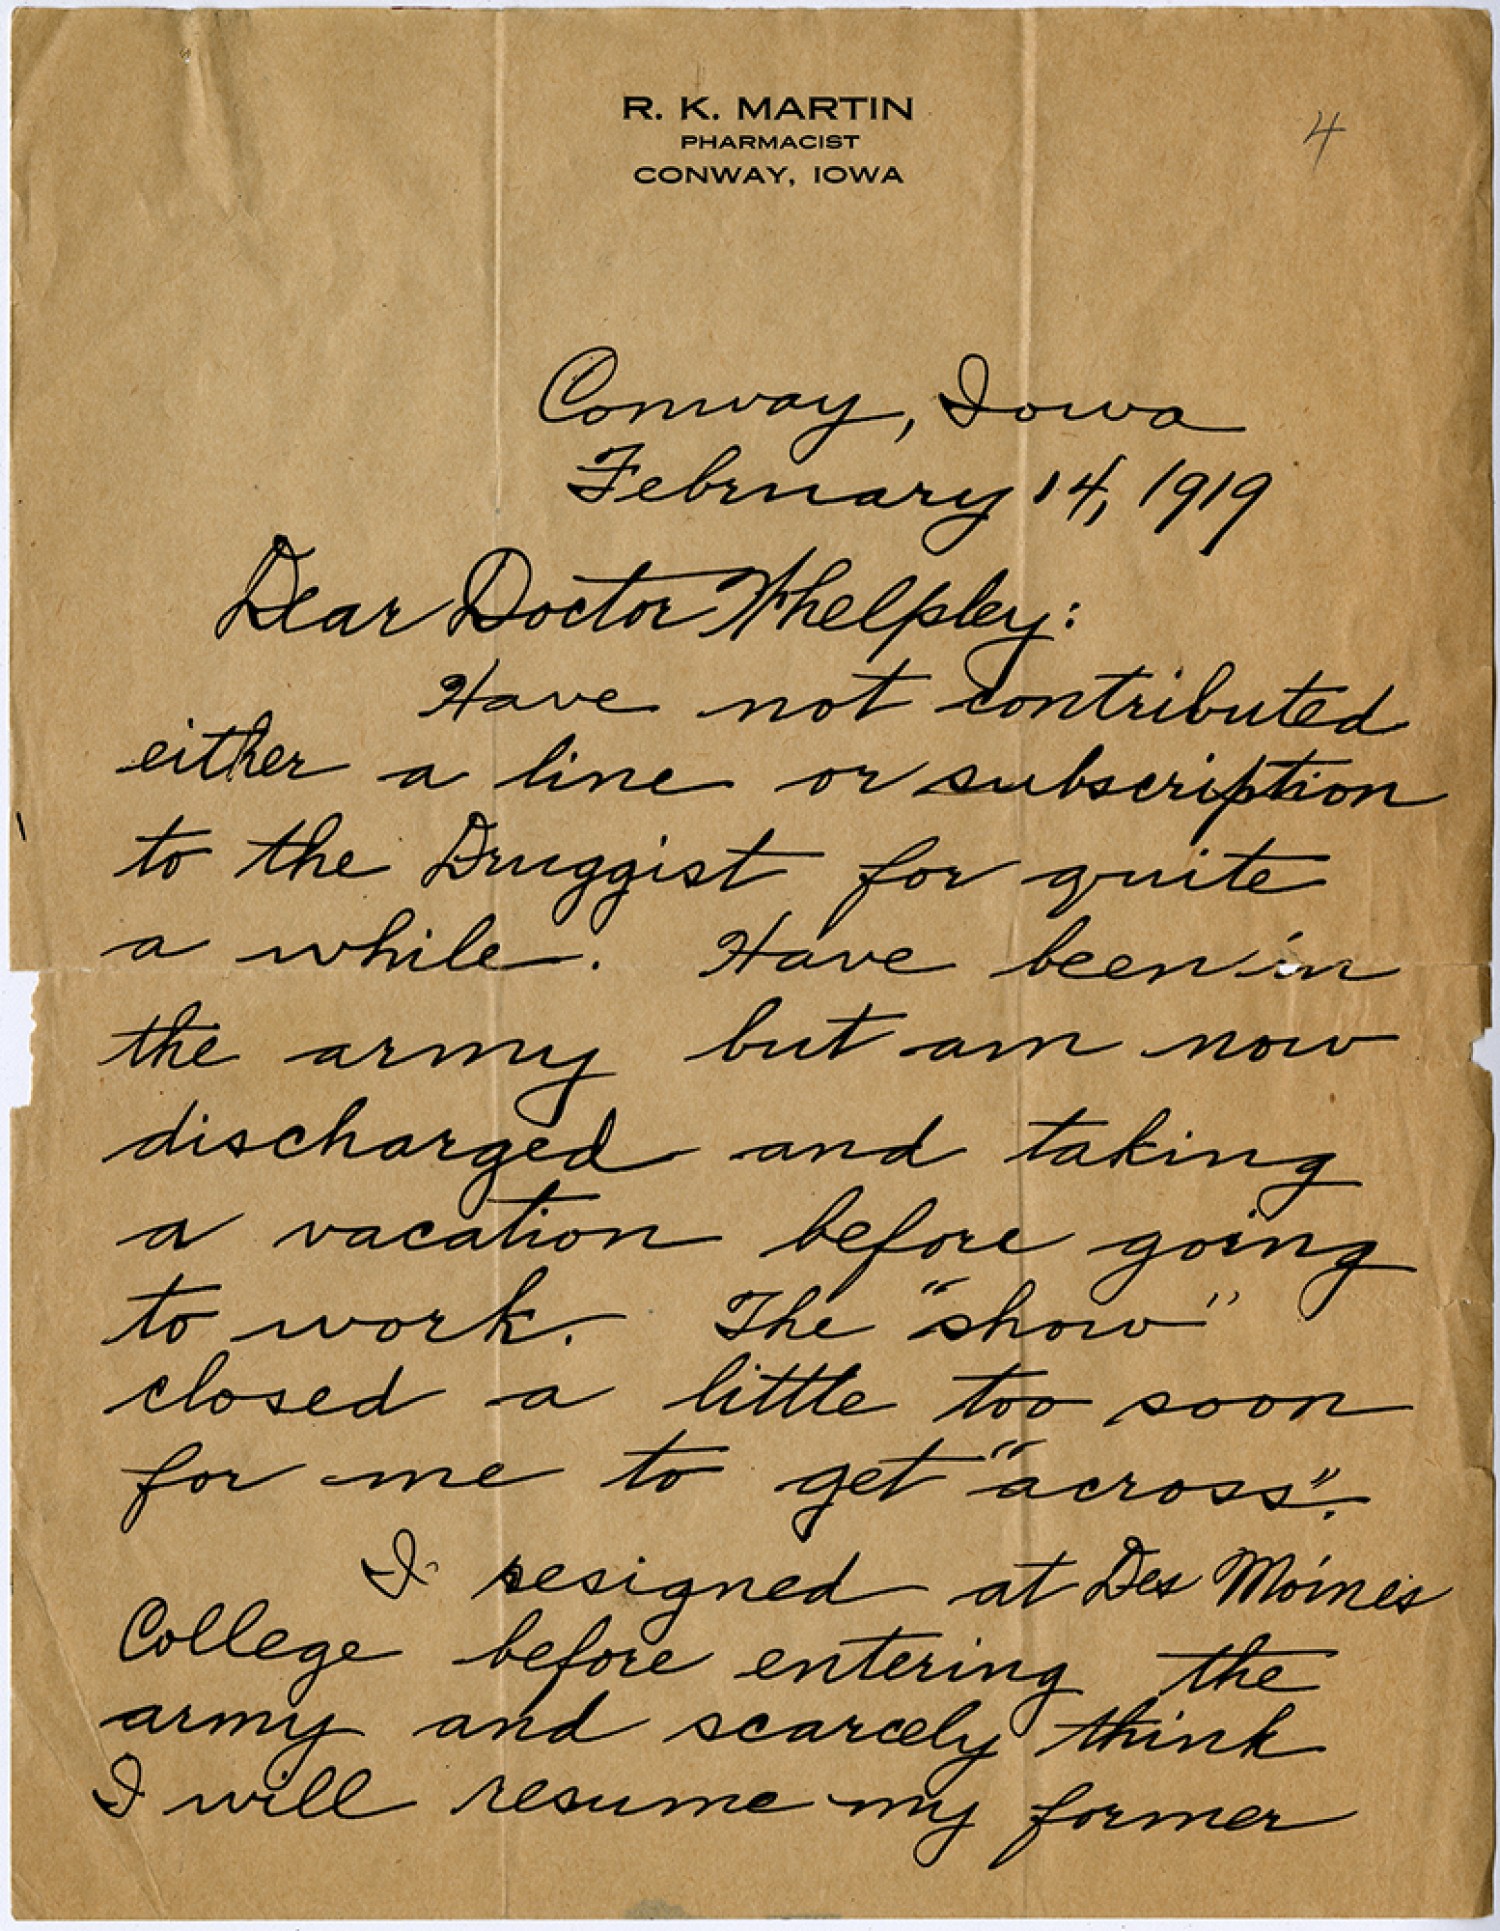 R. K. MARTIN
PHARMACIST
CONWAY, IOWA
4
Conway, Iowa
February 14, 1919
Dear Doctor Whelpley:
Have not contributed
either a line or subscription
to the Druggist for quite
a while. Have been in
the army but am now
discharged and taking
a vacation before going
to work. The "show"
closed a little too soon
for me to get "across".
I resigned at Des Moines
College before entering the
army and scarcely think
I will resume my former